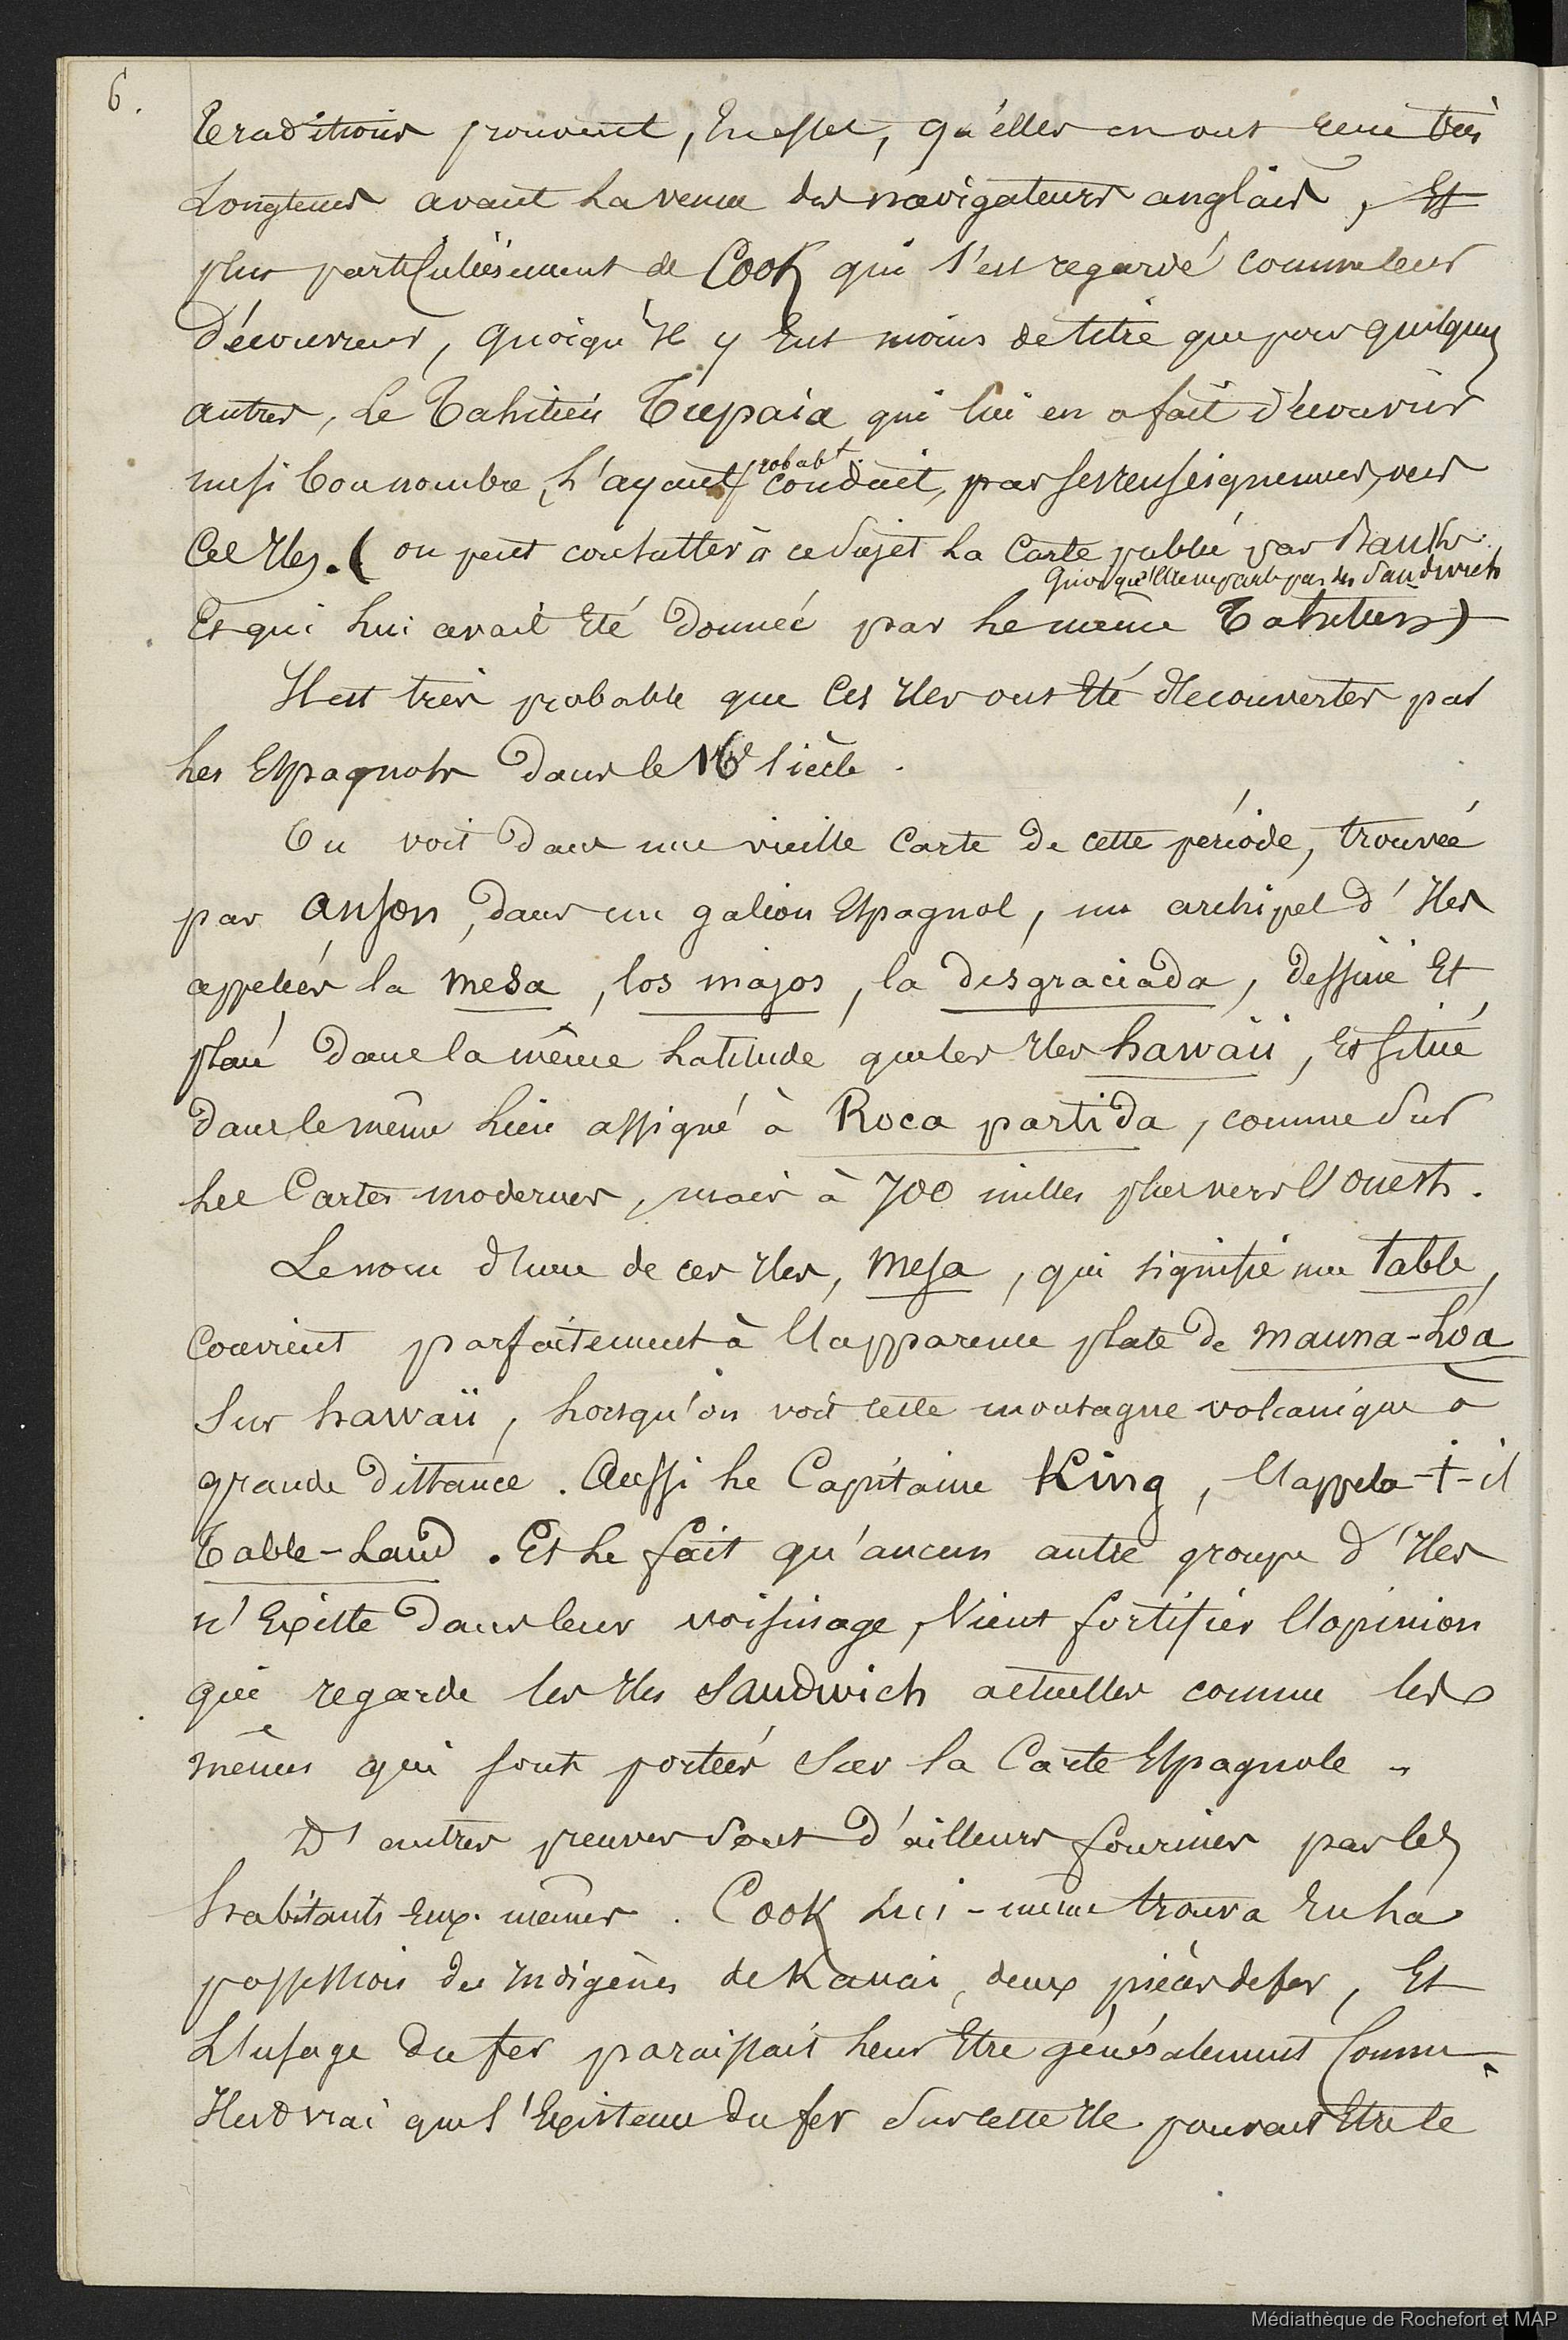 6.
Traditions prouvent, En effet, qu'elles en ont reçu très
Longtems avant La venue des navigateurs anglais, Et
plus particulièrement de Cook qui s'est regardé comme leur
découvreur, quoiqu'Il y Eut moins de titre que pour quelques
autres, Le Tahitien Tupaia qui lui en a fait découvrir
un si bon nombre, L'ayant probabt. conduit, par ses renseignemens, vers
Ces Iles. (on peut consulter à ce sujet La Carte publié par Banks
quoiqu'Elle ne parle pas des Sandwich
Et qui Lui avait Eté donnée par Le même Tahitien)
Il est très probable que Ces Iles ont Eté découvertes par
Les Espagnols dans le 16e siècle.
On voit dans une vieille Carte de cette période, trouvée
par Anson, dans un galion Espagnol, un archipel d'Iles
appelées la mesa, los majos, la desgraciada, dessiné Et
placé dans la même Latitude que les Iles hawaii, Et situé
dans le même Lieu assigné à Roca partida, comme sur
Les Cartes modernes, mais à 700 milles plus vers l'ouest.
Le nom d'une de ces Iles, mesa, qui signifie une table,
Convient parfaitement à l'apparence plate de mauna-Loa
sur hawaii, Lorsqu'on voit cette montagne volcanique à
grande distance. Aussi Le Capitaine King, l'appela-t-il
Table-Land. Et Le fait qu'aucun autre groupe d'Iles
n'Existe dans leur voisinage, Vient fortifier l'opinion
qui regarde les Iles Sandwich actuelles comme les
mêmes qui sont portées sur la Carte Espagnole.
D'autres preuves sont d'ailleurs fournies par les
habitants Eux-mêmes. Cook Lui-même trouva En La
possession des Indigènes de Kauai, deux pièces de fer, Et
L'usage du fer paraissait Leur Etre généralement Connu.
Il est vrai que l'Existence du fer sur cette Ile pouvait Etre le
Médiathèque de Rochefort et MAP